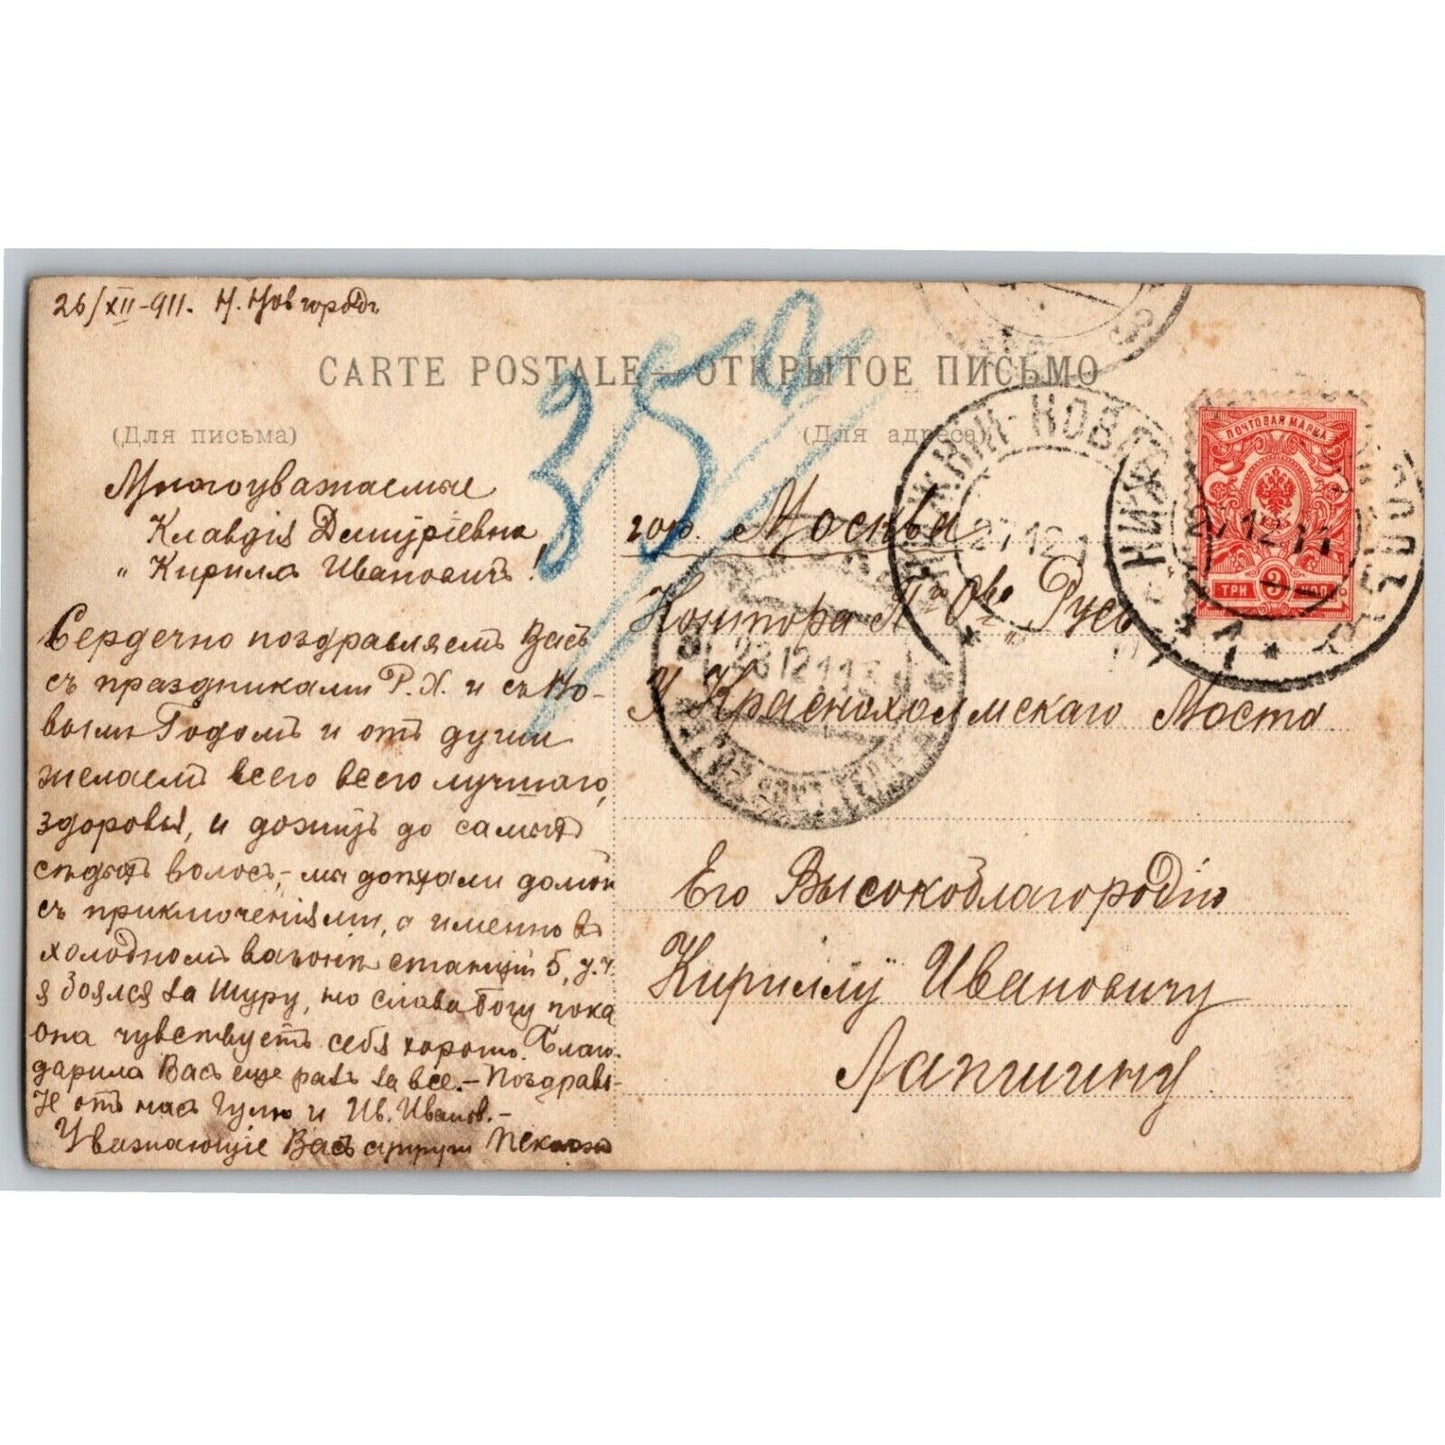 26/XII-911. Н. Новгородъ
CARTE POSTALE — ОТКРЫТОЕ ПИСЬМО
(Для письма)
Многоуважаемые
Клавдія Димитріевна
„ Кирилла Ивановичъ!
Сердечно поздравляемъ Васъ
съ праздниками Р. Х. и съ Но-
вымъ Годомъ и отъ души
желаемъ всего всего лучшаго,
здоровья, и дожить до самыхъ
сѣдыхъ волосъ, – мы доѣхали домой
съ приключеніями, а именно въ
холодномъ вагонѣ станцій 5,
я боялся за Шуру, но слава Богу пока
она чувствуетъ себя хорошо. Благо-
дарила Васъ еще разъ за все. – Поздравь-
те отъ насъ Гулю и Ив. Иванов. –
Уважающіе Васъ
350
(Для адреса)
гор. Москва
Контора Т-ва „Русь
У Краснохолмскаго Моста
Его Высокоблагородію
Кириллу Ивановичу
Лапшину
ПОЧТОВАЯ МАРКА
ТРИ 3 КОП.
НИЖНІЙ-НОВ
27 12 11
НИЖ
27 12 11
28 12 11